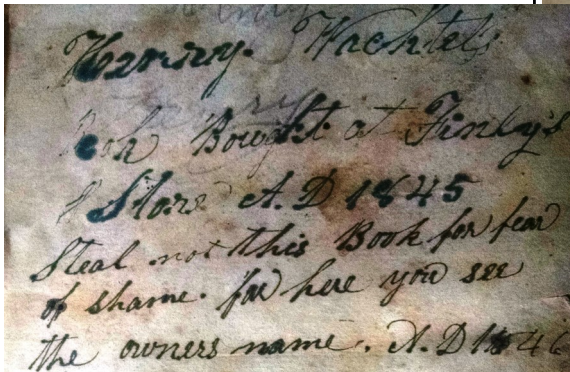 Henry. Wachtel's
Book Bought at Finley's
Store A.D 1845
Steal not this Book for fear
of shame. for here you see
the owners name. A.D 1846